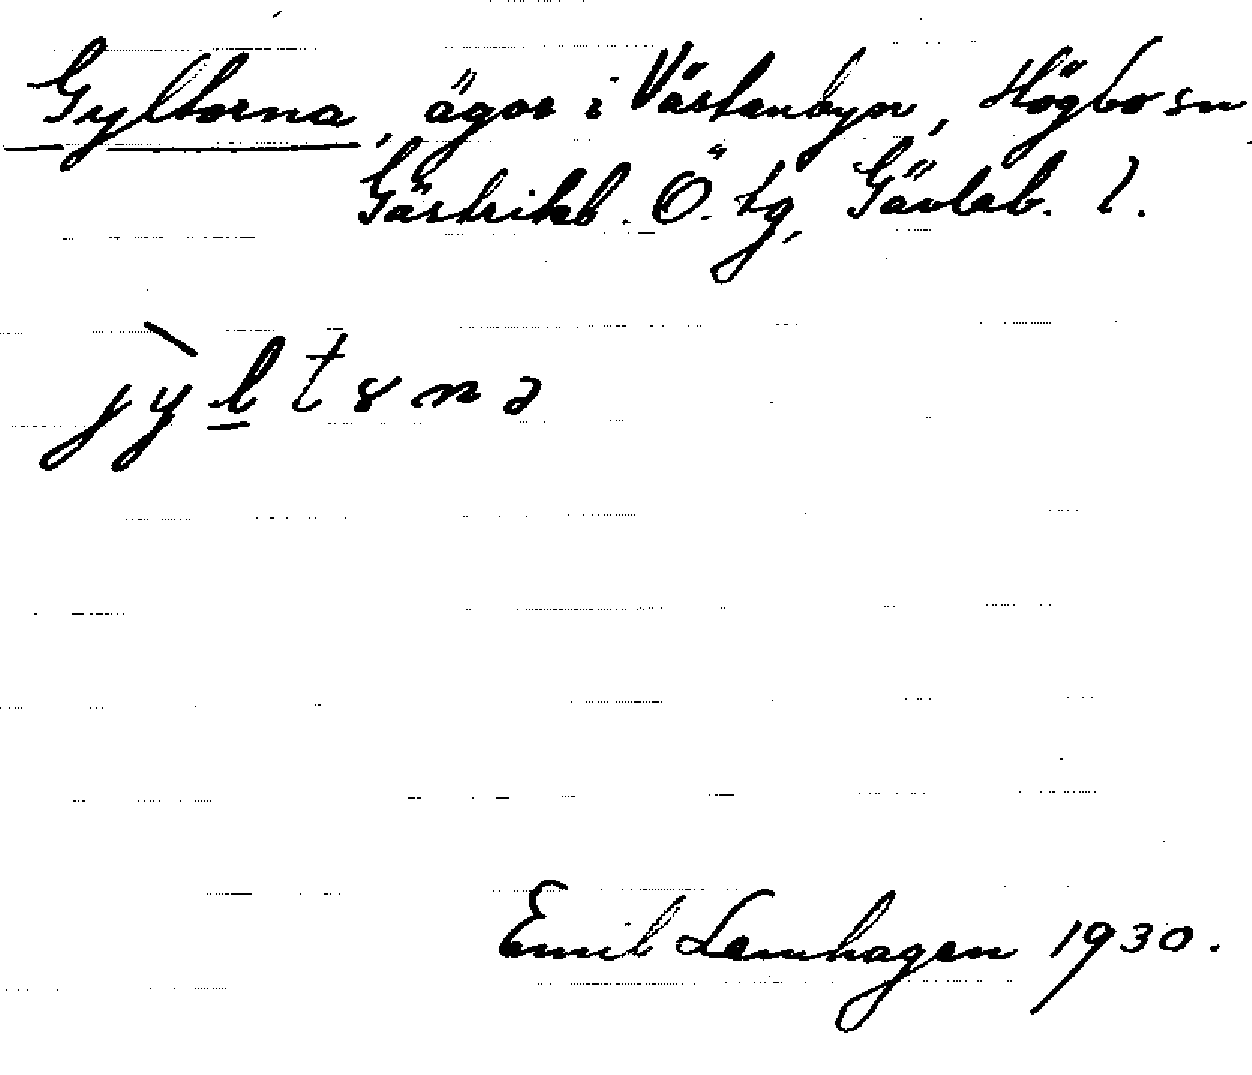 Gyltorna, ägor i Västanbyn, Högbo sn
Gästrikl. Ö. tg, Gävleb. l.
jy̖l̲tɤnə
Emil Lenhagen 1930.